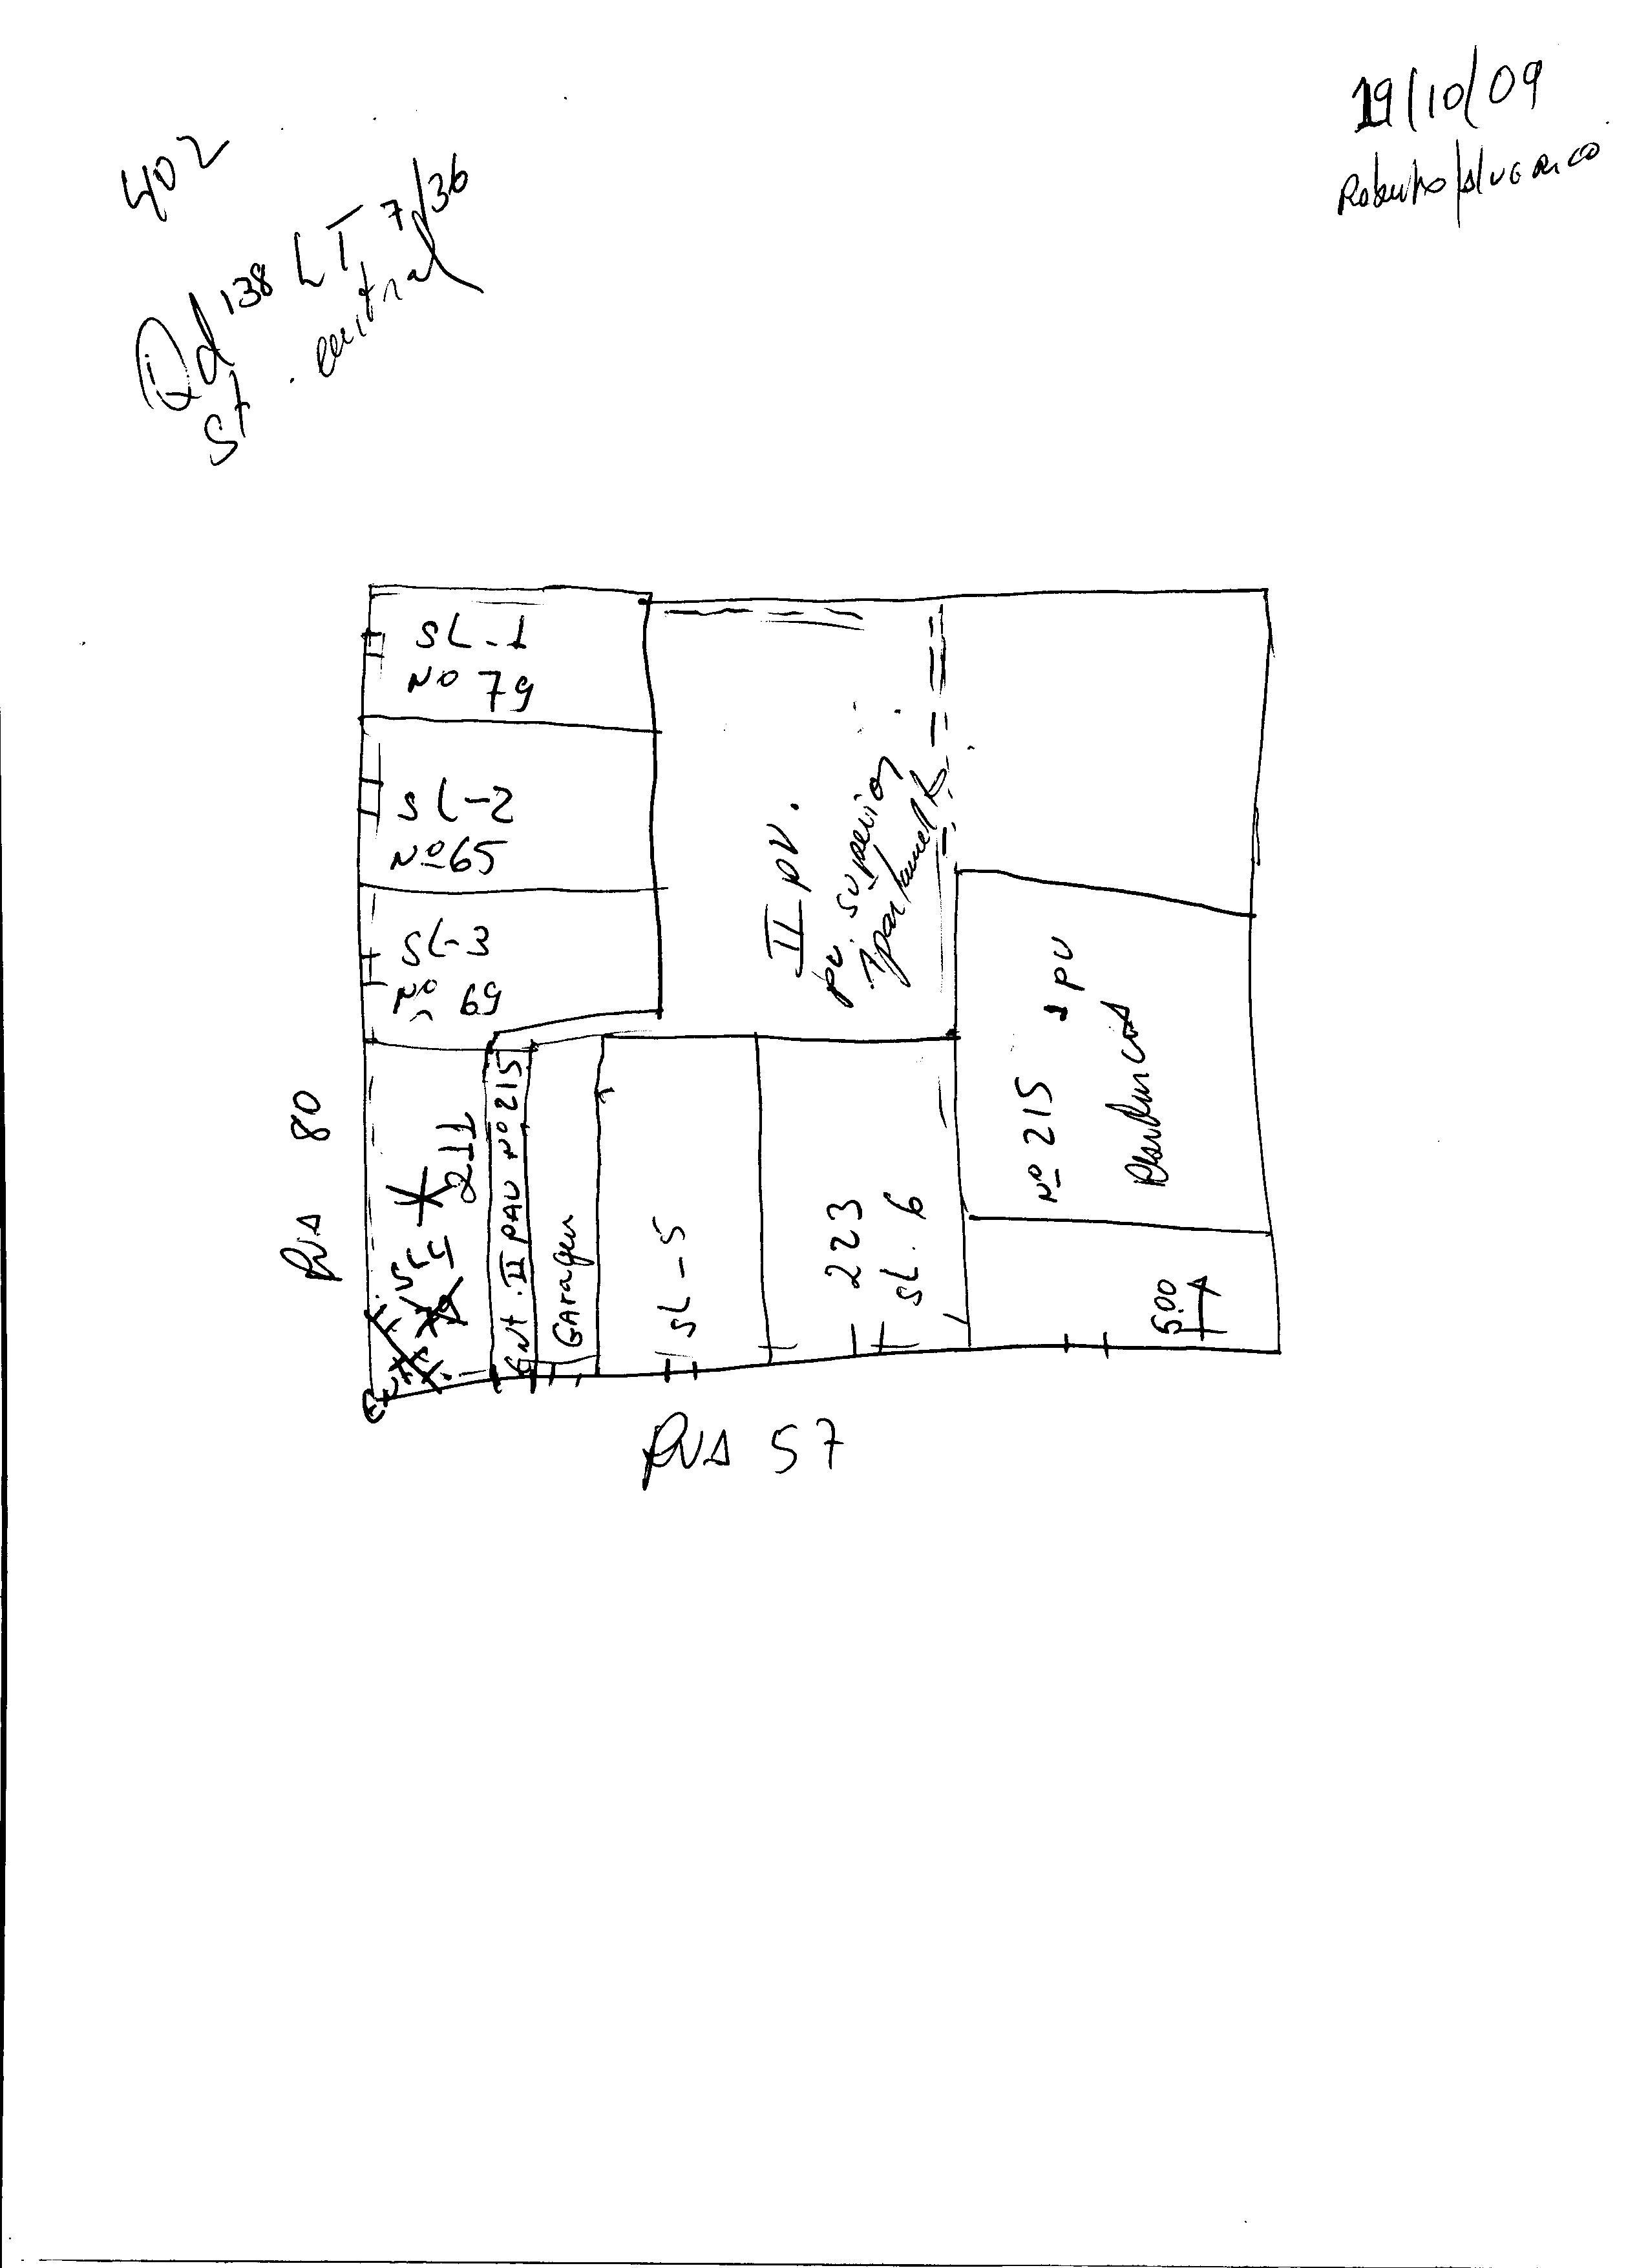 19/10/09
402
Qd 138 LT 7/36
St. central
SL-1
Nº 79
SL-2
Nº 65
SL-3
Nº 69
II pv.
pv. superior
RUA 80
211
Ent. II PAV Nº 215
GAragem
SL-5
223
SL. 6
Nº 215 1 pv
Residencial
5.00
RUA 57